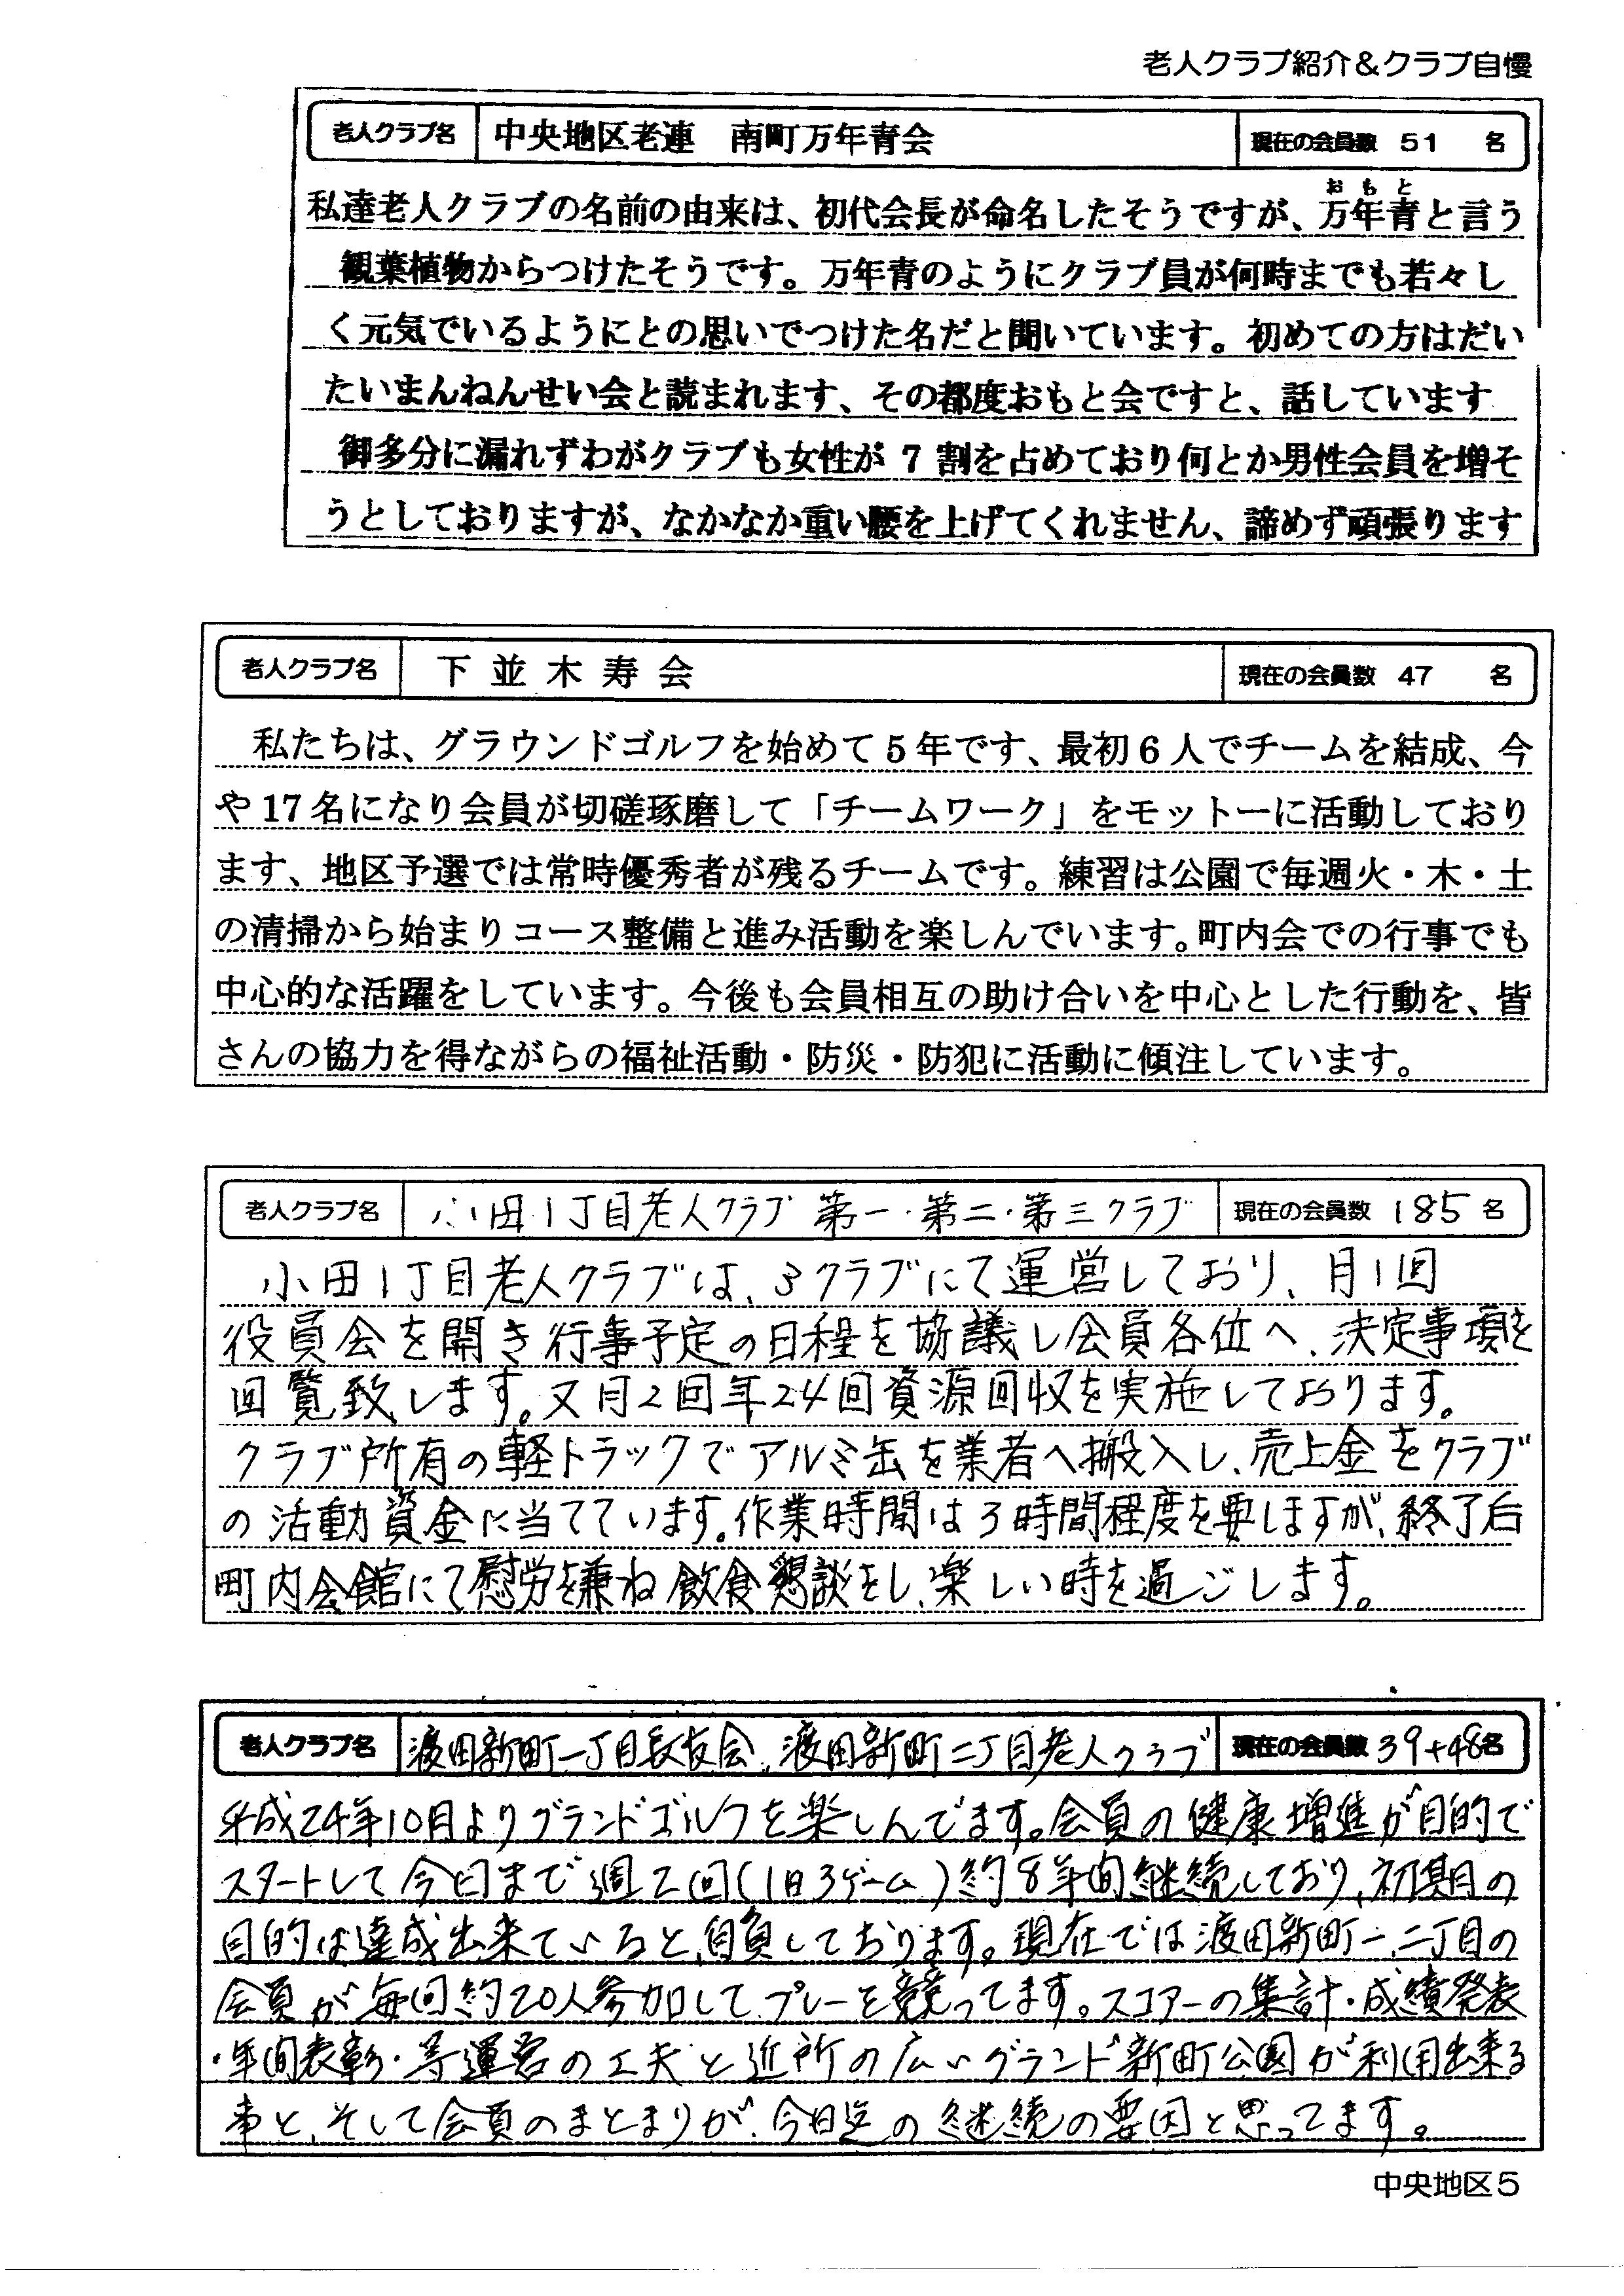 老人クラブ紹介＆クラブ自慢
老人クラブ名 中央地区老連 南町万年青会 現在の会員数 51 名
おもと
私達老人クラブの名前の由来は、初代会長が命名したそうですが、万年青と言う
観葉植物からつけたそうです。万年青のようにクラブ員が何時までも若々し
く元気でいるようにとの思いでつけた名だと聞いています。初めての方はだい
たいまんねんせい会と読まれます、その都度おもと会ですと、話しています
御多分に漏れずわがクラブも女性が 7 割を占めており何とか男性会員を増そ
うとしておりますが、なかなか重い腰を上げてくれません、諦めず頑張ります
老人クラブ名 下並木寿会 現在の会員数 47 名
私たちは、グラウンドゴルフを始めて5年です、最初6人でチームを結成、今
や17名になり会員が切磋琢磨して「チームワーク」をモットーに活動しており
ます、地区予選では常時優秀者が残るチームです。練習は公園で毎週火・木・土
の清掃から始まりコース整備と進み活動を楽しんでいます。町内会での行事でも
中心的な活躍をしています。今後も会員相互の助け合いを中心とした行動を、皆
さんの協力を得ながらの福祉活動・防災・防犯に活動に傾注しています。
老人クラブ名 小田1丁目老人クラブ 第一・第二・第三クラブ 現在の会員数 185 名
小田1丁目老人クラブは、3クラブにて運営しており、月1回
役員会を開き行事予定の日程を協議し会員各位へ、決定事項を
回覧致します。又月2回年24回資源回収を実施しております。
クラブ所有の軽トラックでアルミ缶を業者へ搬入し、売上金をクラブ
の活動資金に当てています。作業時間は3時間程度を要しますが、終了后
町内会館にて慰労を兼ね飲食懇談をし、楽しい時を過ごします。
老人クラブ名 渡田新町一丁目長友会、渡田新町二丁目老人クラブ 現在の会員数 39+48名
平成24年10月よりグランドゴルフを楽しんでます。会員の健康増進が目的で
スタートして今日まで週2回(1日3ゲーム)約8年間継続しており、初期の
目的は達成出来ていると、自負しております。現在では渡田新町一、二丁目の
会員が毎回約20人参加してプレーを競ってます。スコアーの集計・成績発表
・年間表彰・等運営の工夫と近所の広いグランド新町公園が利用出来る
事と、そして会員のまとまりが、今日迄の継続の要因と思ってます。
中央地区5